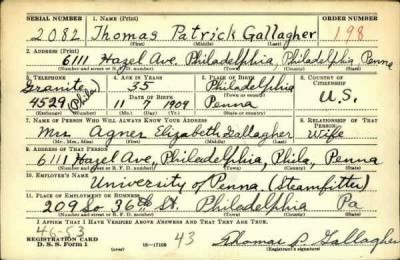 SERIAL NUMBER 1. NAME (Print) ORDER NUMBER
2082 Thomas Patrick Gallagher 198
(First) (Middle) (Last)
2. ADDRESS (Print)
6111 Hazel Ave. Philadelphia, Philadelphia Penna
(Number and street or R. F. D. number) (Town) (County) (State)
3. TELEPHONE 4. AGE IN YEARS 5. PLACE OF BIRTH 6. COUNTRY OF CITIZENSHIP
Granite (Phila) 35 Philadelphia
DATE OF BIRTH
4529 11 7 1904 Penna U.S.
(Exchange) (Number) (Mo.) (Day) (Yr.) (State or country)
7. NAME OF PERSON WHO WILL ALWAYS KNOW YOUR ADDRESS 8. RELATIONSHIP OF THAT PERSON
Mrs. Agnes Elizabeth Gallagher Wife
(Mr., Mrs., Miss) (First) (Middle) (Last)
9. ADDRESS OF THAT PERSON
6111 Hazel Ave, Philadelphia, Phila, Penna
(Number and street or R. F. D. number) (Town) (County) (State)
10. EMPLOYER'S NAME
University of Penna. (Steamfitter)
11. PLACE OF EMPLOYMENT OR BUSINESS
209 So 36th St. Philadelphia Pa
(Number and street or R. F. D. number) (Town) (County) (State)
I AFFIRM THAT I HAVE VERIFIED ABOVE ANSWERS AND THAT THEY ARE TRUE.
46-53
REGISTRATION CARD
D. S. S. Form 1 (over) 16—17105 43 Thomas P. Gallagher
(Registrant's signature)